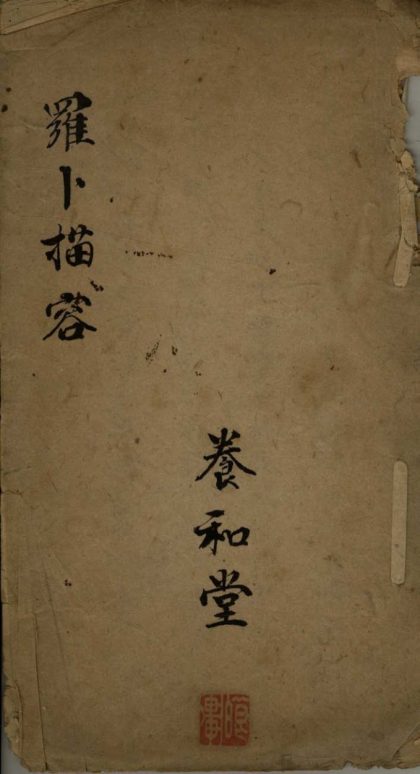 羅卜描容
養和堂